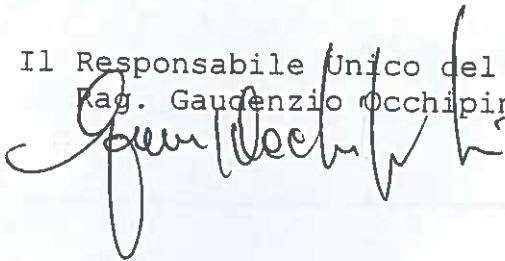 Il Responsabile Unico del
Rag. Gaudenzio Occhipin